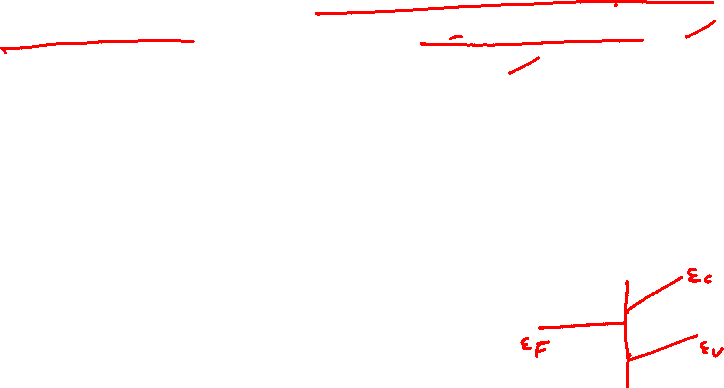 εc
εF
εv